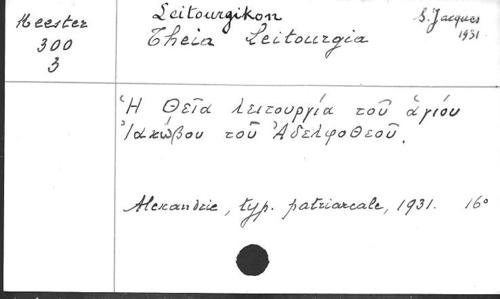 Meester
300
3
Leitourgikon
Theia Leitourgia
S. Jacques
1931
Ἡ Θεῖα λειτουργία τοῦ ἁγίου
Ἰακώβου τοῦ Ἀδελφοθεοῦ.
Alexandrie, typ. patriarcale, 1931. 16°